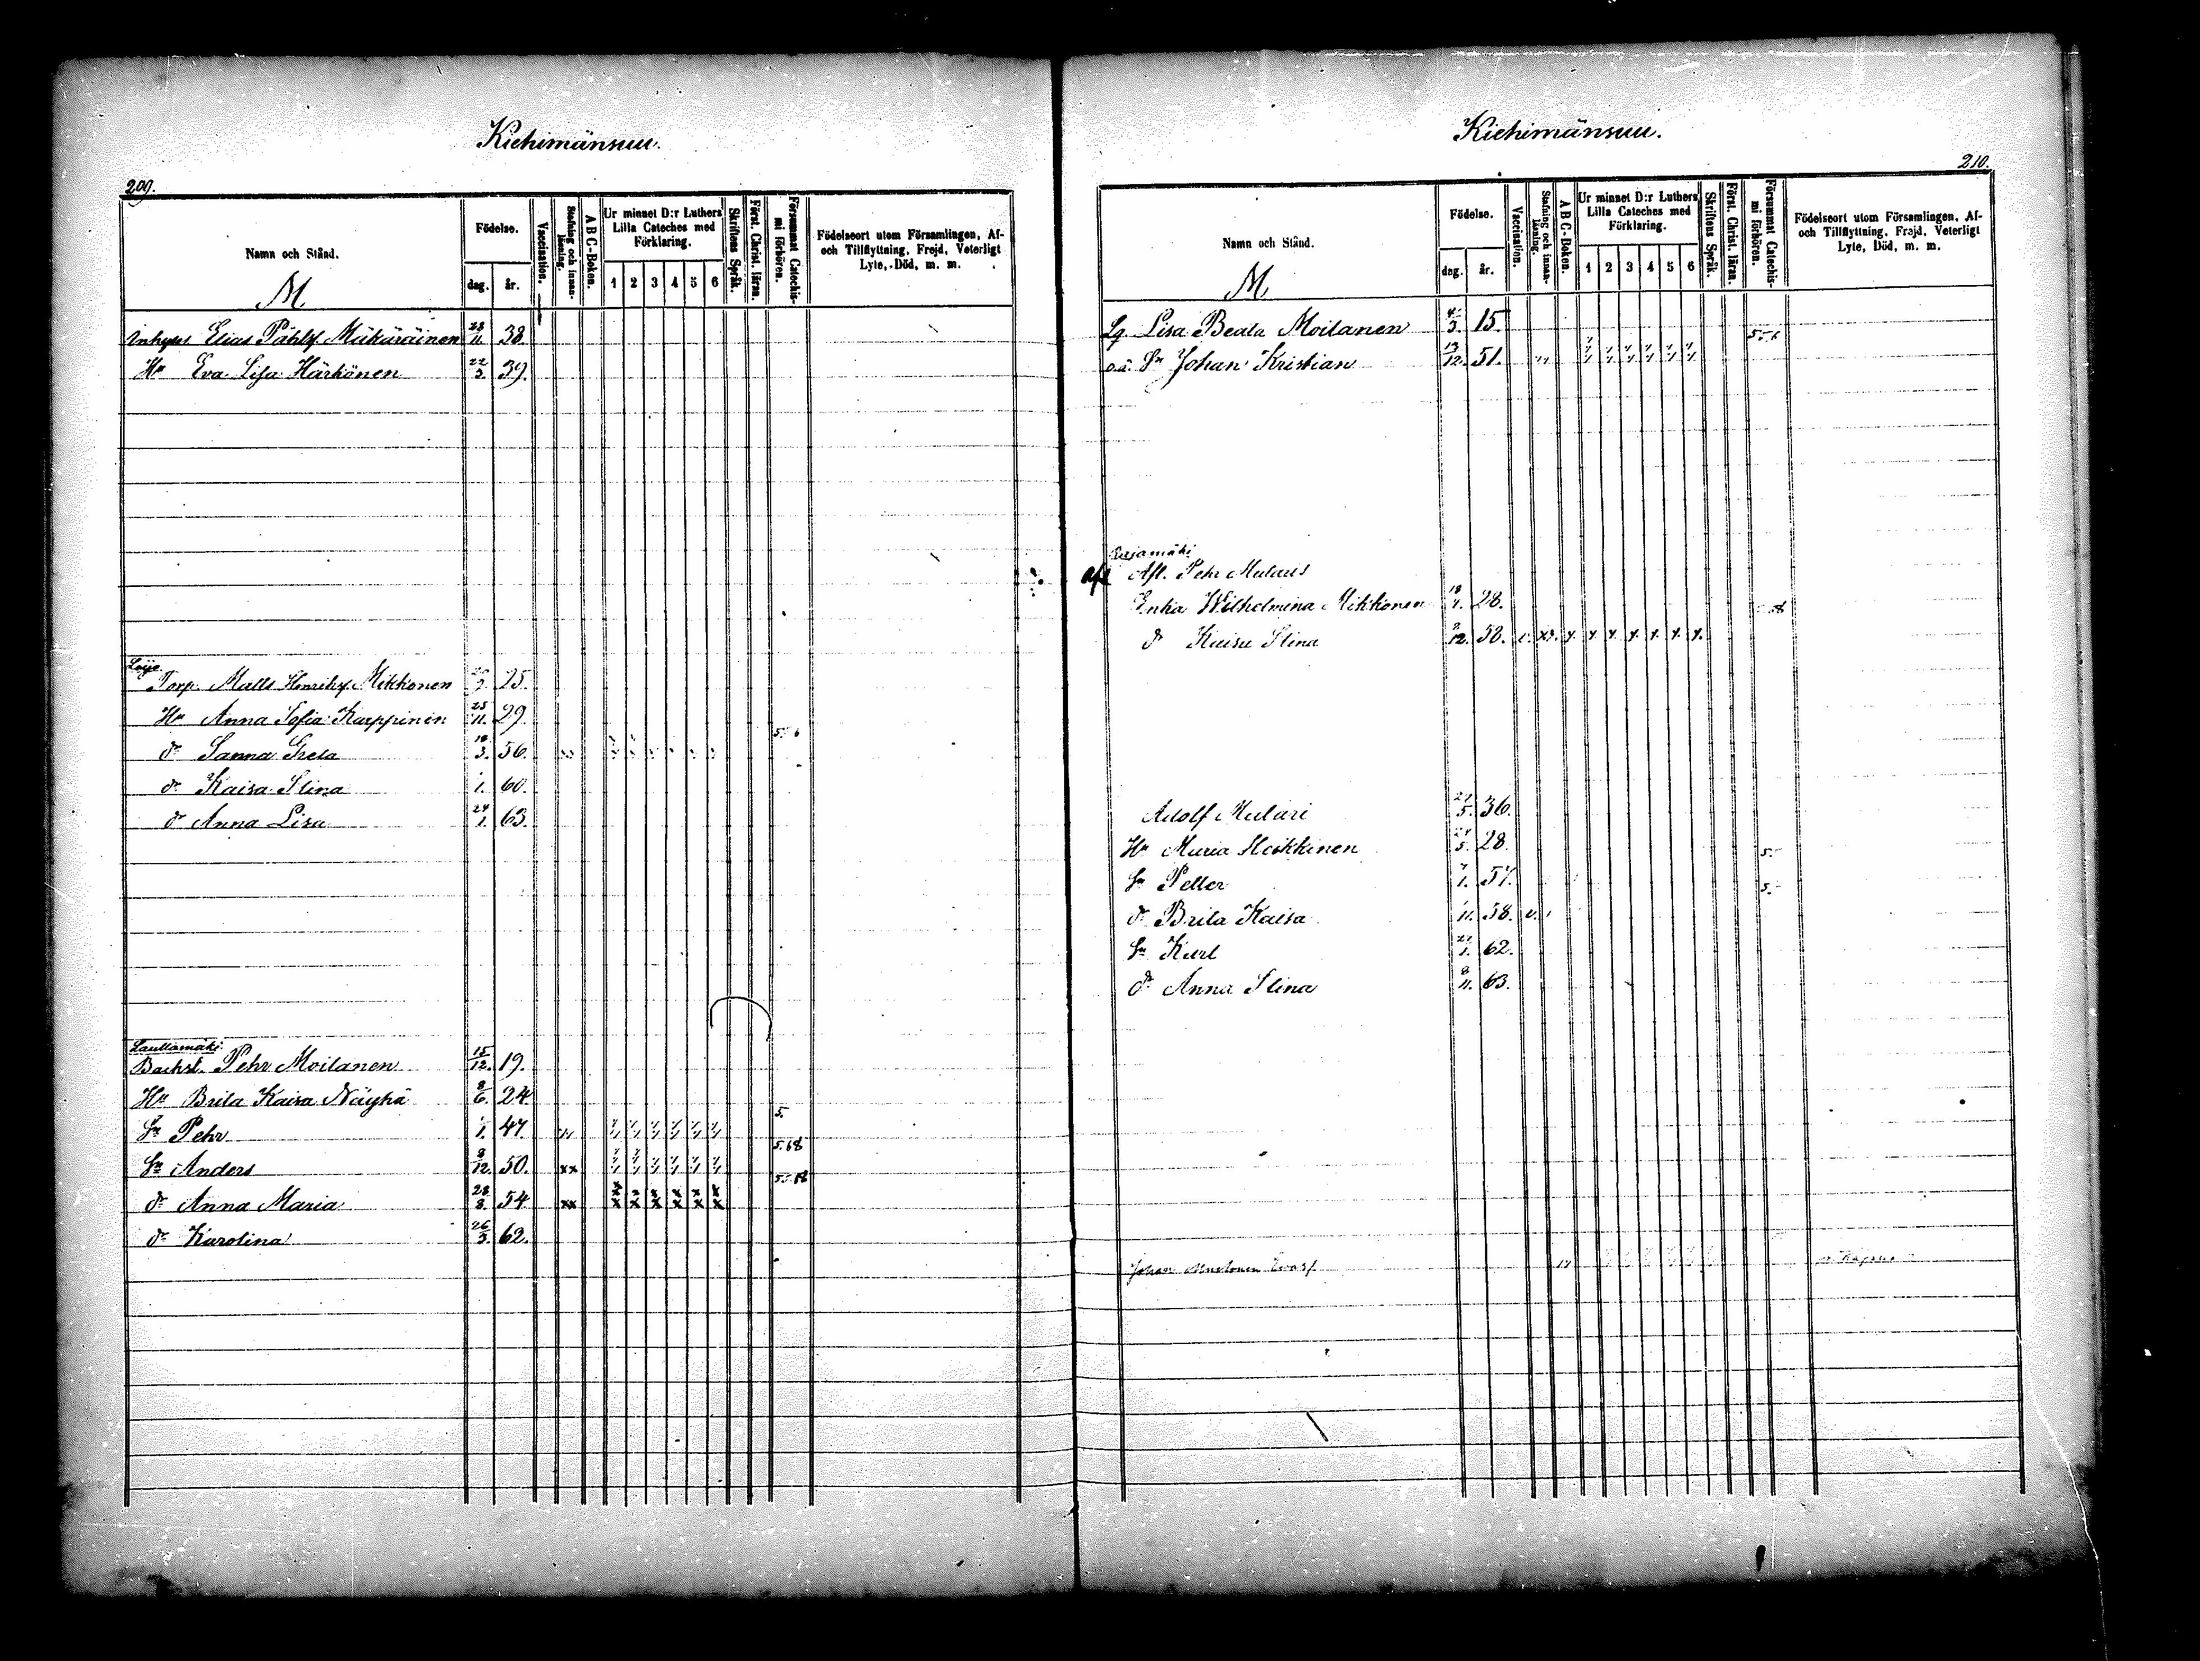 Kiehimänsuu.
209.
Namn och Stånd.
Födelse.
dag. år.
Vaccination.
Stafning och innan-läsning.
ABC-Boken.
Ur minnet D:r Luthers Lilla Cateches med Förklaring.
1 2 3 4 5 6
Skriftens Språk.
Först. Christ. läran.
Försummat Catechis-mi förhören.
Födelseort utom Församlingen, Af-och Tillflyttning, Frejd, Veterligt Lyte, Död, m. m.
M
Inhyses Elias Påhlsf. Mäkäräinen 23/11. 38.
Hu Eva Lisa Härkönen 22/3. 39.
Torp. Matts Henriksf. Mikkonen 25.
Hu Anna Sofia Karppinen 25/11. 29.
5. 6
dr Sanna Greta 18/3. 56.
dr Kaisa Stina 1. 60.
dr Anna Lisa 24/1. 63.
Lauttamäki
Backst. Pehr Moilanen 15/12. 19.
Hu Brita Kaisa Näyhä 8/6. 24.
5.
Sn Pehr 1. 47.
5. 68
Sn Anders 8/12. 50. xx
dr Anna Maria 28/8. 54 xx x x x x x x
dr Karolina 26/3. 62.
Kiehimänsuu.
210.
Namn och Stånd.
Födelse.
dag. år.
Vaccination.
Stafning och innan-läsning.
ABC-Boken.
Ur minnet D:r Luthers Lilla Cateches med Förklaring.
1 2 3 4 5 6
Skriftens Språk.
Först. Christ. läran.
Försummat Catechis-mi förhören.
Födelseort utom Församlingen, Af-och Tillflyttning, Frejd, Veterligt Lyte, Död, m. m.
M
Lg Lisa Beata Moilanen 4/3. 15.
5. 6
o.ä. Sn Johan Kristian 13/12. 51.
Afl. Pehr Mularis
Enka Wilhelmina Mikkonen 18/7. 28.
dr Kaisa Stina 12. 58.
Adolf Mulari 27/5. 36.
Hu Maria Heikkinen 28.
5.
Sn Petter 1. 57.
5.
dr Brita Kaisa 11. 58. v.
Sn Karl 62.
dr Anna Stina 8/11. 63.
Johan